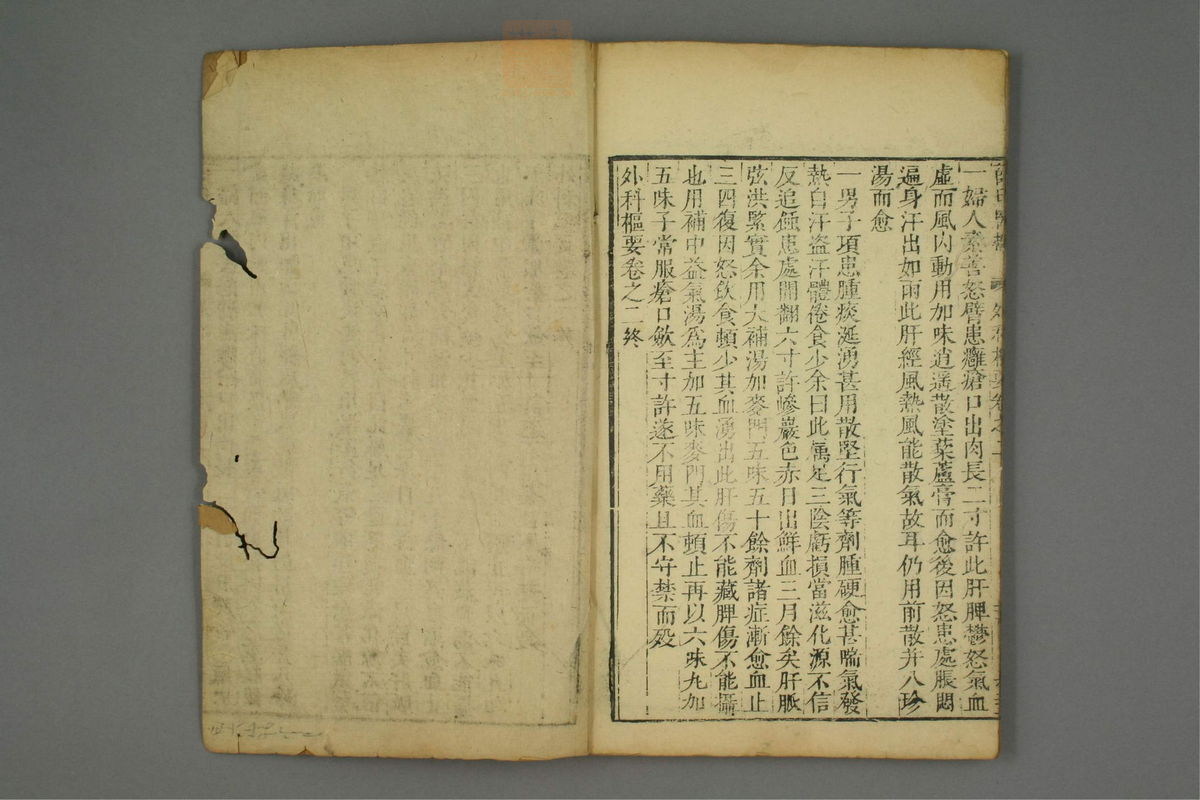 一婦人素善怒臂患癰瘡口出肉長二寸許此肝脾鬱怒氣血
虛而風內動用加味逍遥散塗藜蘆膏而愈後因怒患處脹悶
遍身汗出如雨此肝經風熱風能散氣故耳仍用前散并八珍
湯而愈
一男子項患腫痰涎湧甚用散堅行氣等劑腫硬愈甚喘氣發
熱自汗盜汗體倦食少余曰此屬足三陰虧損當滋化源不信
反追蝕患處開翻六寸許巉巖色赤日出鮮血三月餘矣肝脈
弦洪緊實余用大補湯加麥門五味五十餘劑諸症漸愈血止
三四復因怒飲食頓少其血湧出此肝傷不能藏脾傷不能攝
也用補中益氣湯爲主加五味麥門其血頓止再以六味丸加
五味子常服瘡口歛至寸許遂不用藥且不守禁而歿
外科樞要卷之二終